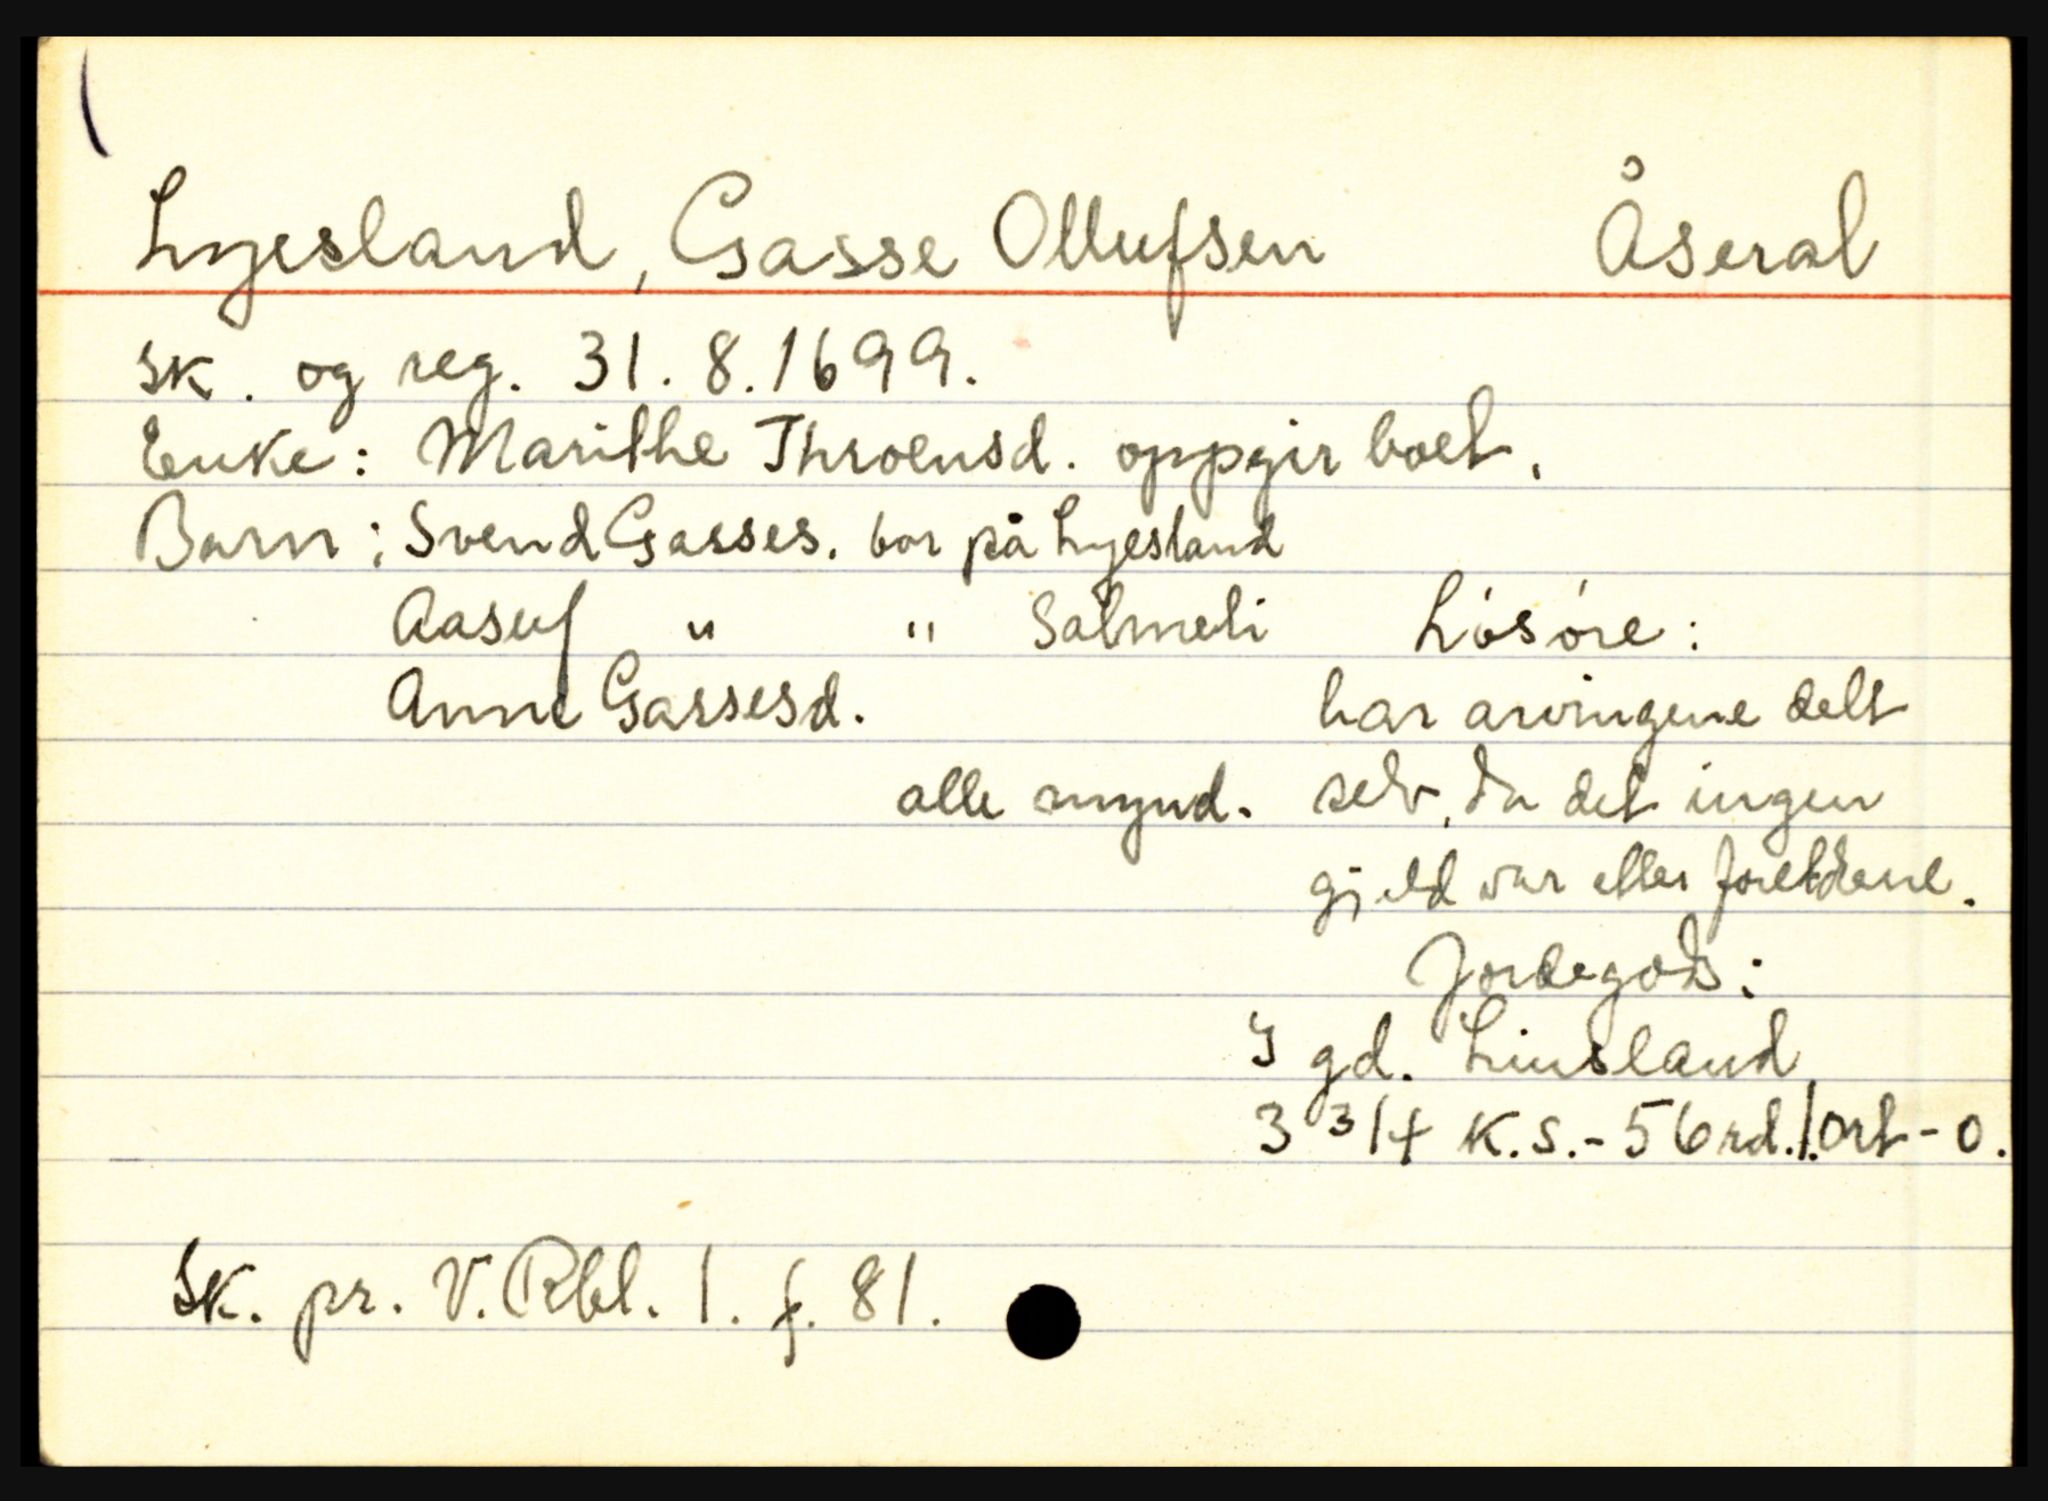 Lyesland, Gasse Ollufsen Åseral
sk. og reg. 31.8.1699.
Enke: Marithe Throensd. oppgir boet.
Barn: Svend Gasses. bor på Lyesland
Aasuf " " Salmeli
Anne Gassesd.
alle mynd.
Løsøre:
har arvingene delt
selv, da det ingen
gjeld var eller foreldrene.
Jordegods:
I gd. Linsland
3 3/4 K.S.-56 rd. 1. ort - 0.
Sk. pr. V. Rbl. 1. f. 81.